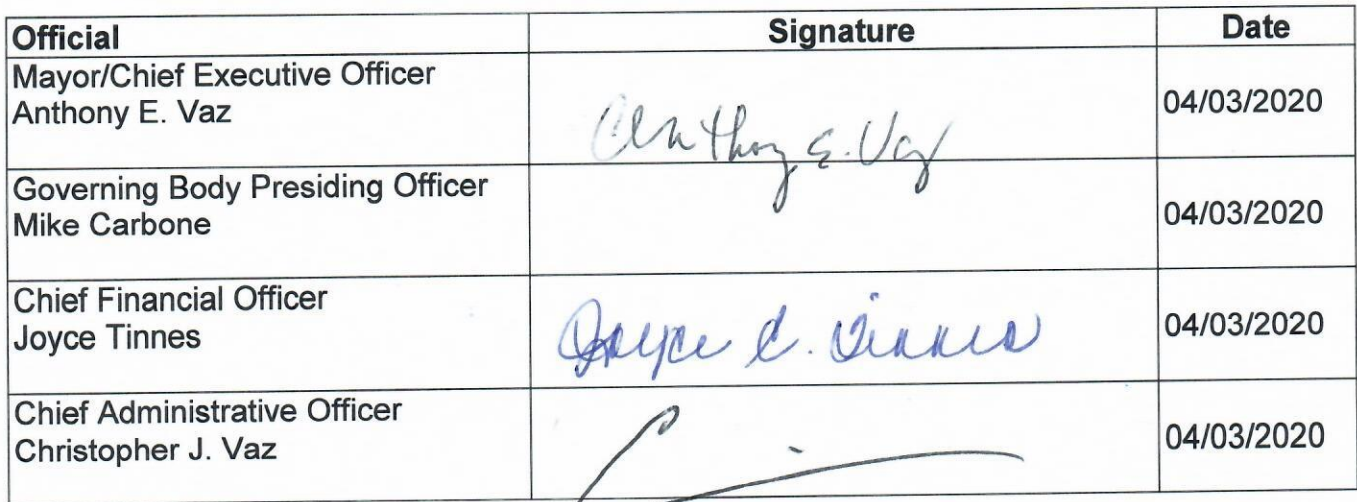 Official Signature Date
Mayor/Chief Executive Officer
Anthony E. Vaz
Anthony E. Vaz
04/03/2020
Governing Body Presiding Officer
Mike Carbone
04/03/2020
Chief Financial Officer
Joyce Tinnes
Joyce C. Tinnes
04/03/2020
Chief Administrative Officer
Christopher J. Vaz
04/03/2020